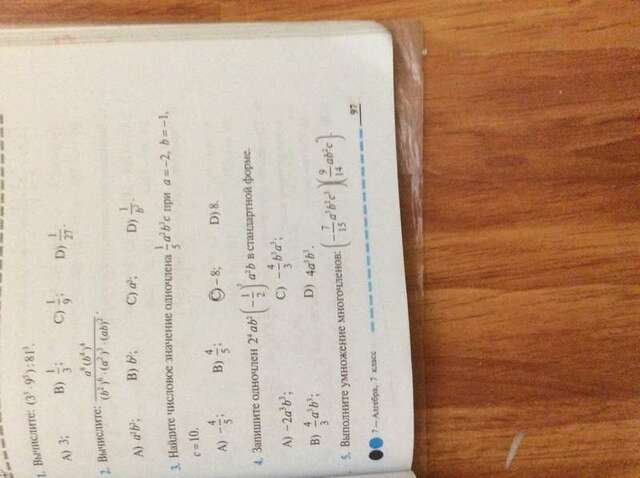 1. Вычислите: (3⁵ · 9⁵) : 81³.
A) 3; B) 1/3; C) 1/9; D) 1/27.
2. Вычислите: a⁸(b⁸)⁴ / (b²)⁶ · (a²)³ · (ab)²
A) a²b²; B) b²; C) a²; D) 1/b²
3. Найдите числовое значение одночлена 1/5 a²b²c при a = –2, b = –1,
c = 10.
A) –4/5; B) 4/5; C) –8; D) 8.
4. Запишите одночлен 2⁴ab²(–1/2)³ a²b в стандартной форме.
A) –2a³b³; C) –4/3 b³a³;
B) 4/3 a³b³; D) 4a³b³.
5. Выполните умножение многочленов: (–7/15 a³b²c³)(9/14 ab²c).
97
7 – Алгебра, 7 класс